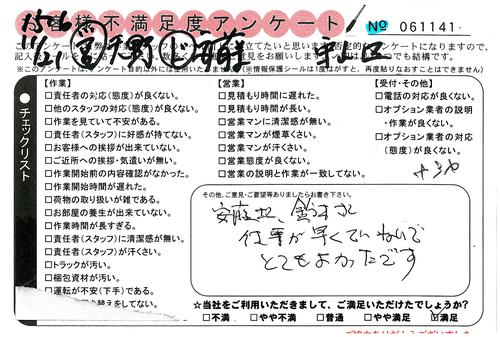 お客様不満足度アンケート
No 061141
※このアンケートはアンケート目的以外には使用いたしません(※情報保護シールは1度はがすと、再度貼りなおすことはできません)
チェックリスト
【作業】
□責任者の対応(態度)が良くない。
□他のスタッフの対応(態度)が良くない。
□作業を見ていて不安がある。
□責任者(スタッフ)に好感が持てない。
□お客様への挨拶が出来ていない。
□ご近所への挨拶・気遣いが無い。
□作業開始前の内容確認がなかった。
□作業開始時間が遅れた。
□荷物の取り扱いが雑である。
□お部屋の養生が出来ていない。
□作業時間が長すぎる。
□責任者(スタッフ)に清潔感が無い。
□責任者(スタッフ)が汗くさい。
□トラックが汚い。
□梱包資材が汚い。
□運転が不安(下手)である。
替えをしてない。
【営業】
□見積もり時間に遅れた。
□見積もり時間が長い。
□営業マンに清潔感が無い。
□営業マンが煙草くさい。
□営業マンが汗くさい。
□営業態度が良くない。
□営業の説明と作業が一致してない。
【受付・その他】
□電話の対応が良くない。
□オプション業者の説明
・作業が良くない。
□オプション業者の対応
(態度)が良くない。
その他、ご意見・ご要望等ありましたらお書き下さい。
仕事が早くていねいで
とてもよかったです
☆当社をご利用いただきまして、ご満足いただけたでしょうか?
□不満 □やや不満 □普通 □やや満足 ☑満足